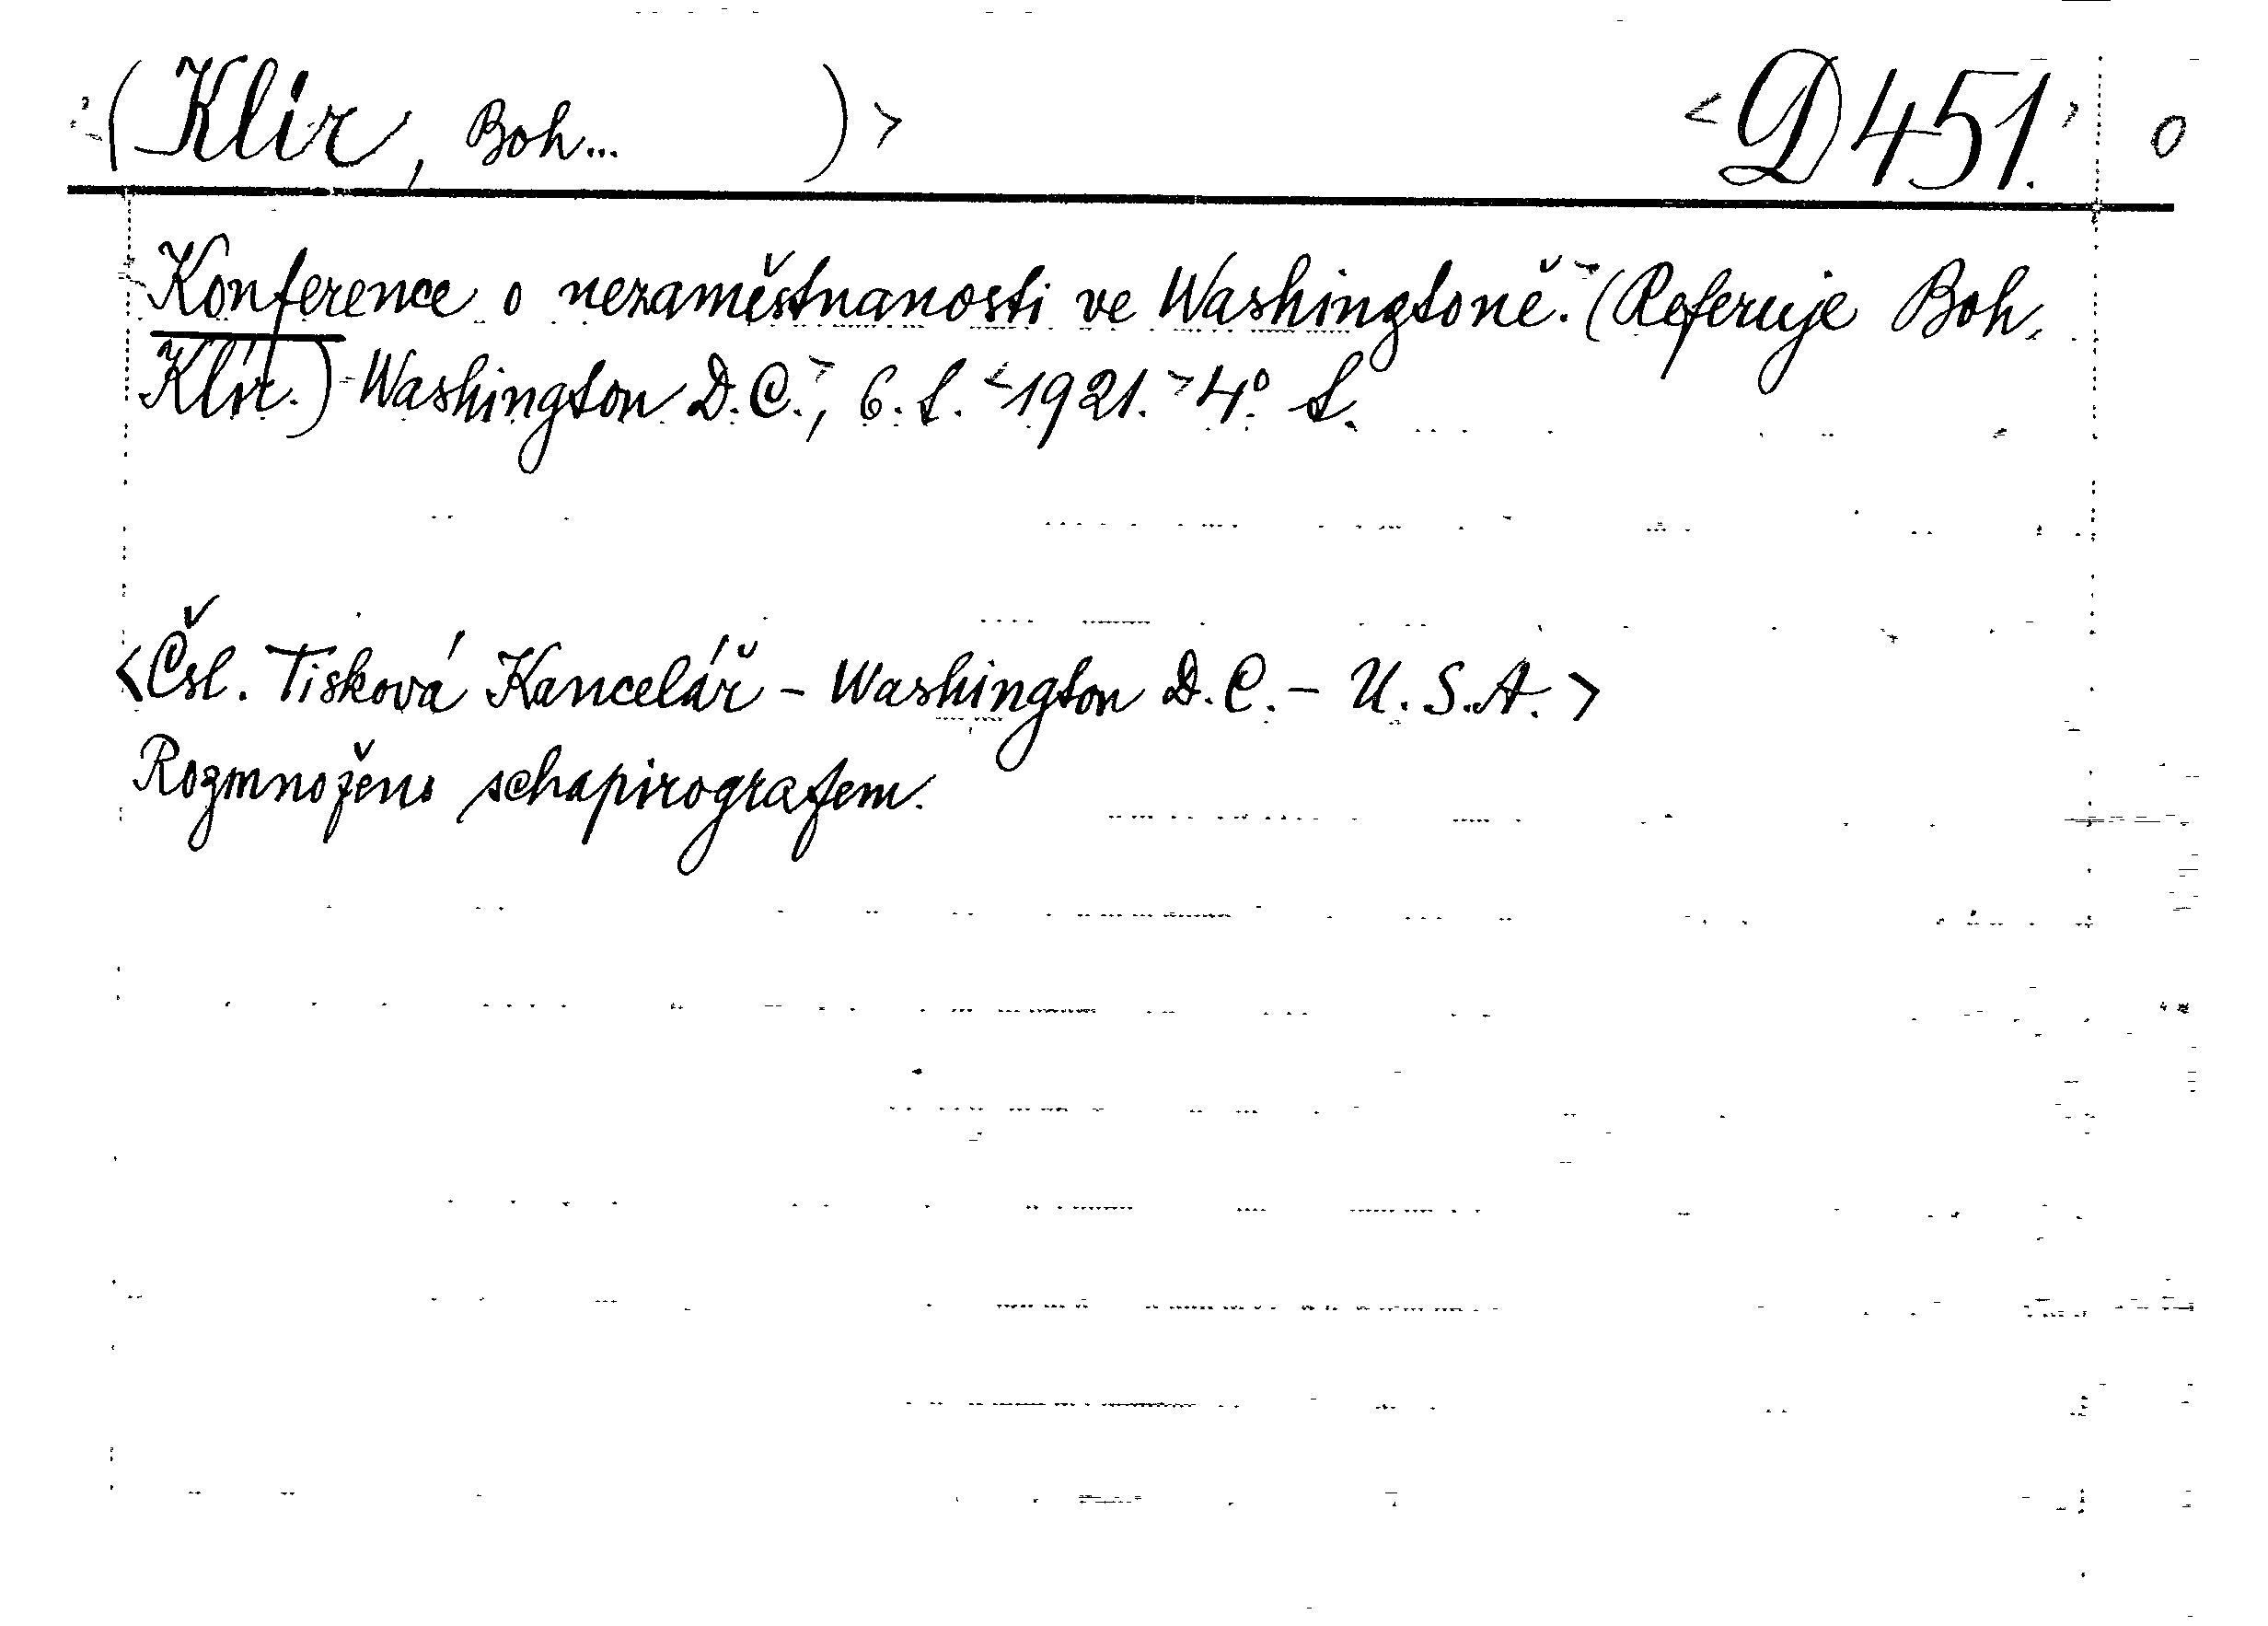 <(Klír, Boh... )> <D 451.> 0
<Konference o nezaměstnanosti ve Washingtoně.> (Referuje Boh.
Klír.) <Washington D.C.>, b. l. <1921.> 4°. L.
<Čsl. Tisková Kancelář - Washington D.C. - U.S.A.>
Rozmnoženo schapirografem.